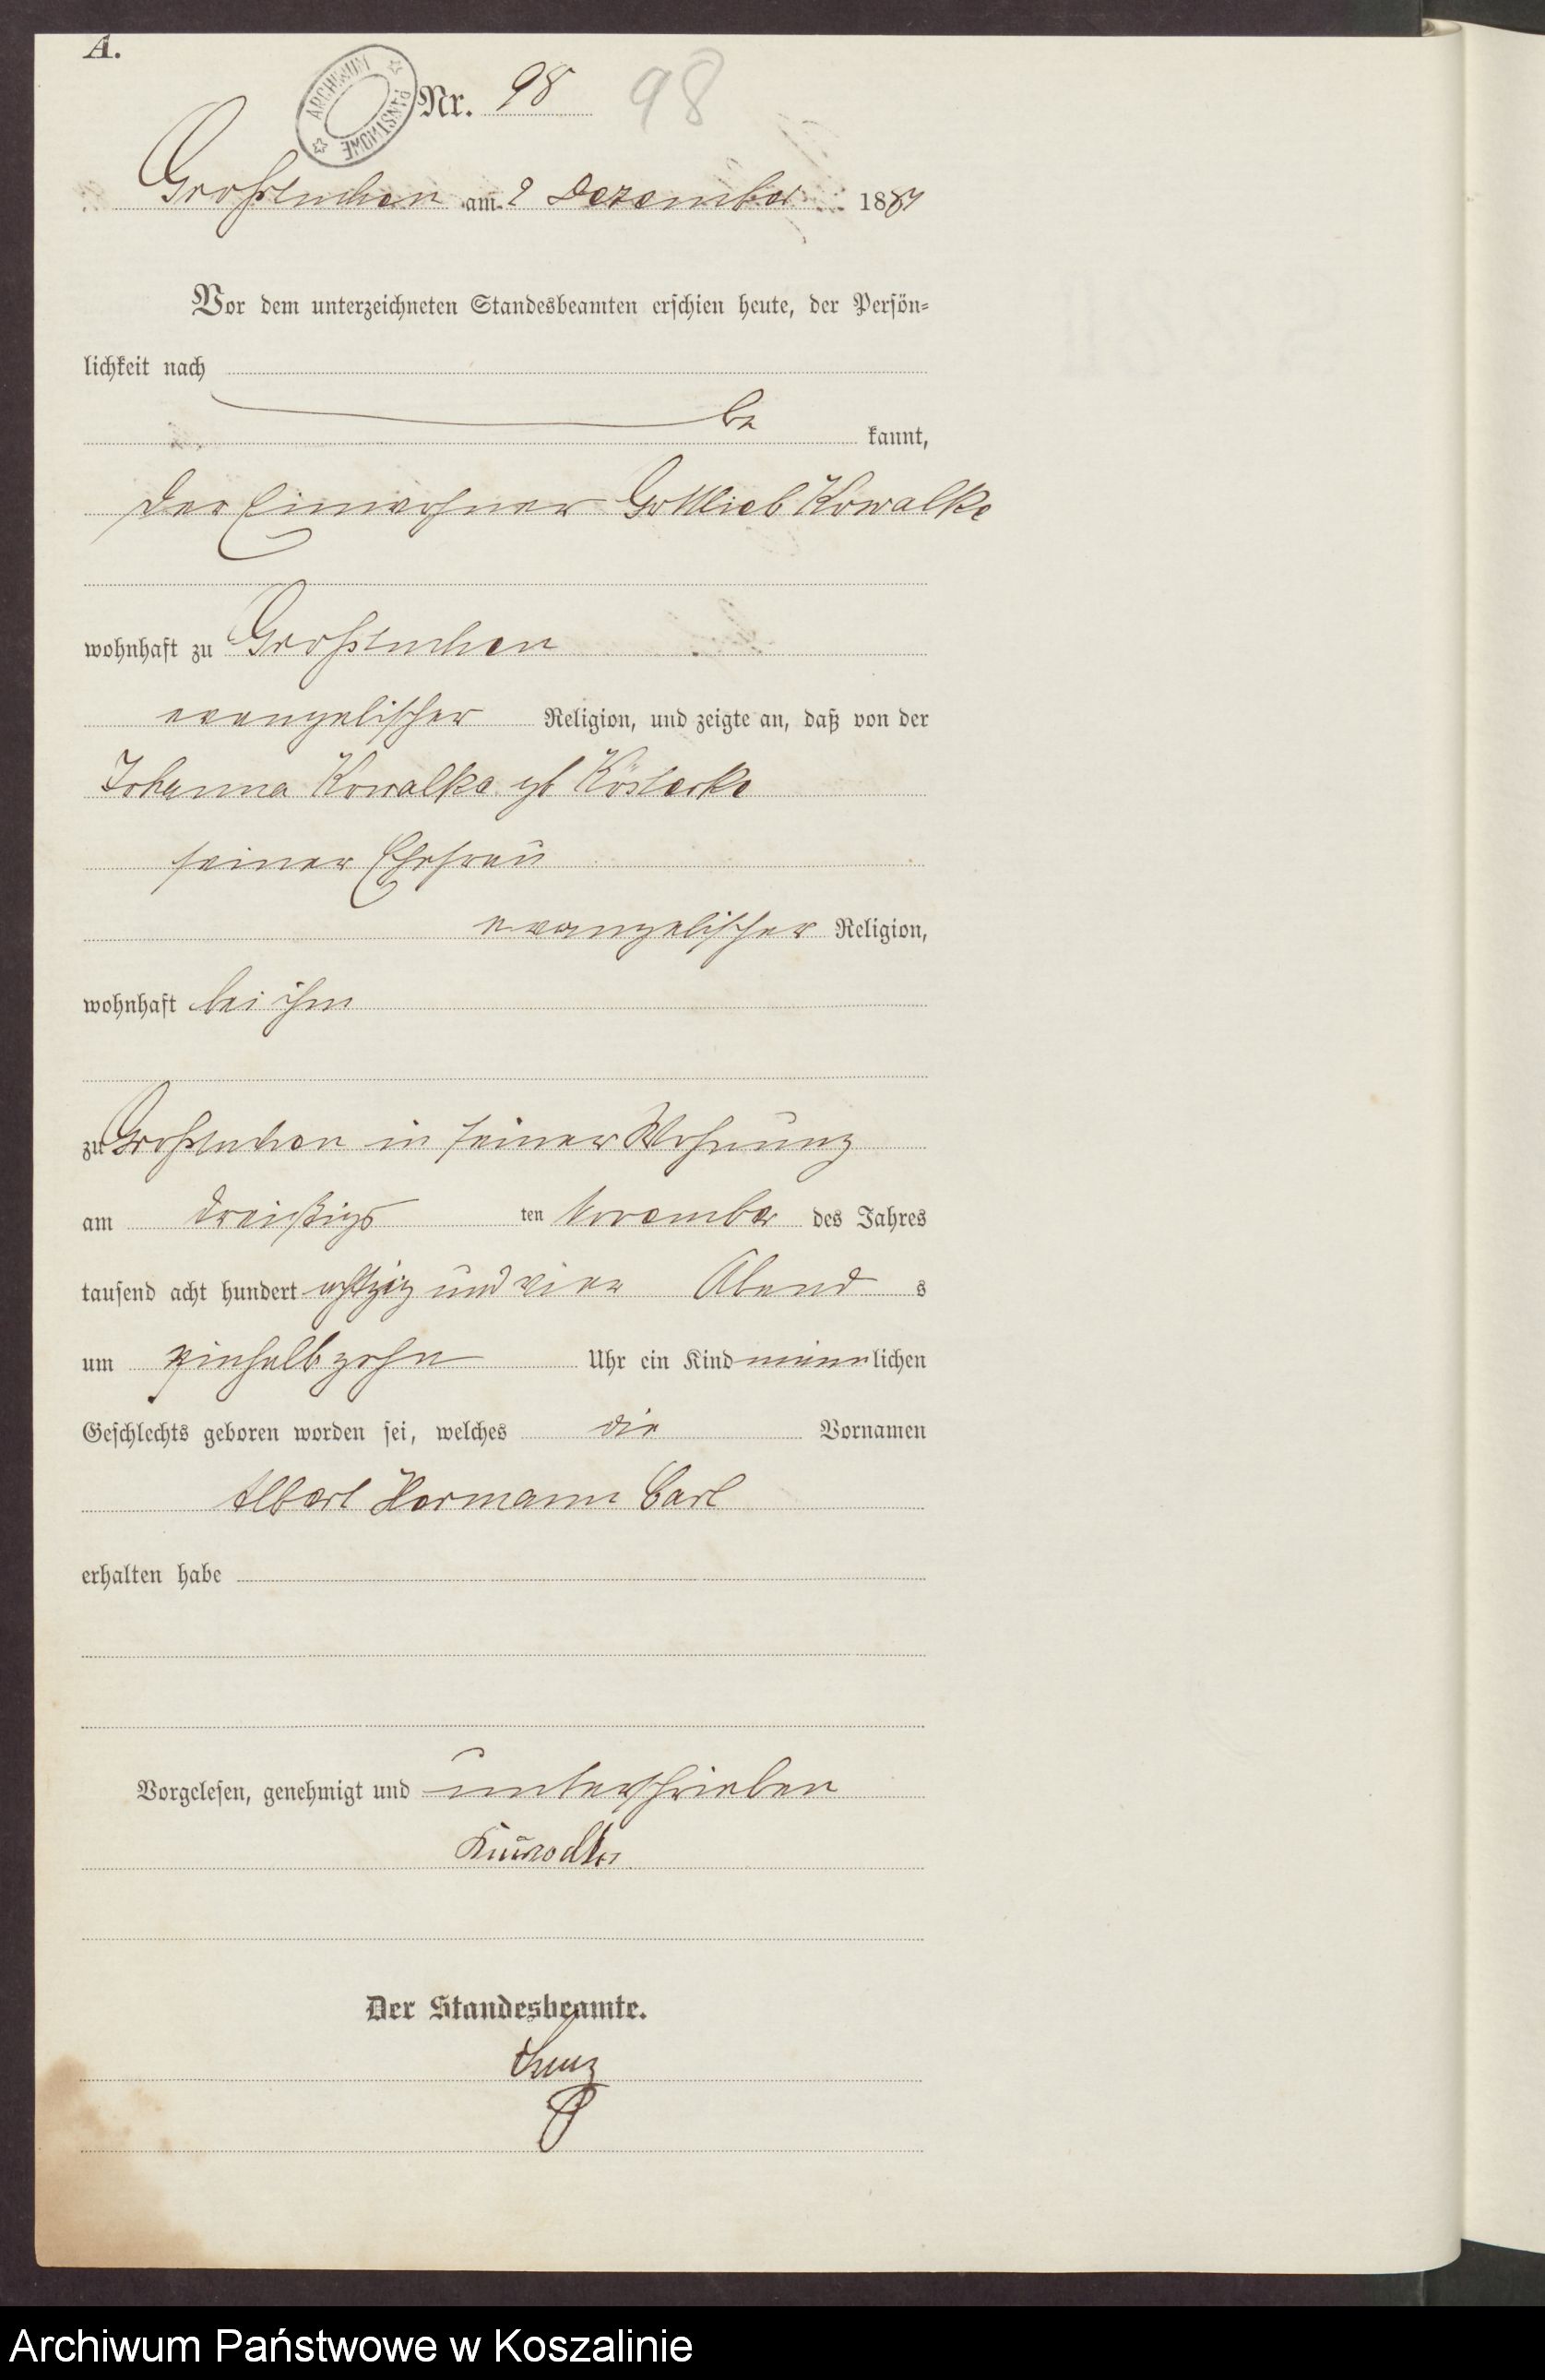 A.
ARCHIWUM PAŃSTWOWE
Nr. 98 98
Großtuchen am 2 Dezember 1884
Vor dem unterzeichneten Standesbeamten erschien heute, der Persön=
lichkeit nach
be kannt,
der Einwohner Gottlieb Kowalke
wohnhaft zu Großtuchen
evangelischer Religion, und zeigte an, daß von der
Johanna Kowalke gb Kösterke
seiner Ehefrau
evangelischer Religion,
wohnhaft bei ihm
zu Großtuchen in seiner Wohnung
am dreißigs ten November des Jahres
tausend acht hundert achtzig und vier Abend s
um einhalb zehn Uhr ein Kind männlichen
Geschlechts geboren worden sei, welches die Vornamen
Albert Hermann Carl
erhalten habe
Vorgelesen, genehmigt und unterschrieben
Der Standesbeamte.
Archiwum Państwowe w Koszalinie